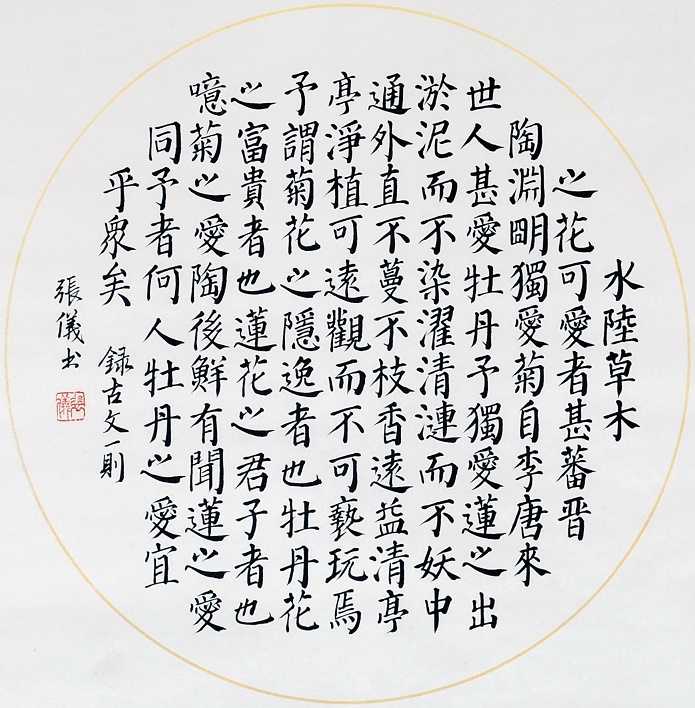 水陸草木
之花可愛者甚蕃晋
陶淵明獨愛菊自李唐來
世人甚愛牡丹予獨愛蓮之出
淤泥而不染濯清漣而不妖中
通外直不蔓不枝香遠益清亭
亭淨植可遠觀而不可褻玩焉
予謂菊花之隱逸者也牡丹花
之富貴者也蓮花之君子者也
噫菊之愛陶後鮮有聞蓮之愛
同予者何人牡丹之愛宜
乎眾矣 録古文一則
張儀书
張儀